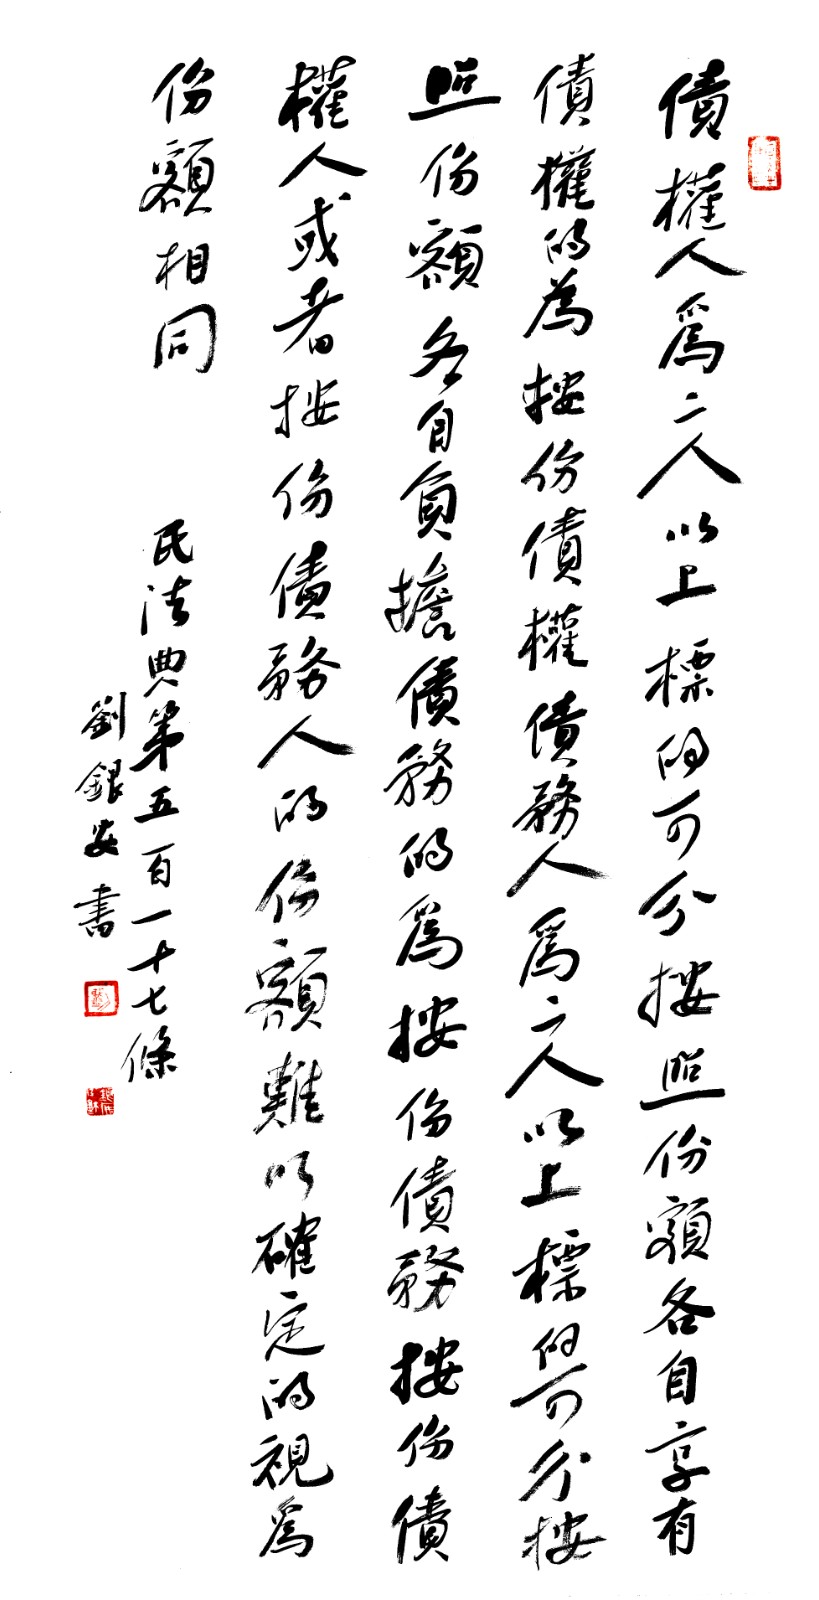 債權人爲二人以上標的可分按照份額各自享有
債權的為按份債權債務人爲二人以上標的可分按
照份額各自負擔債務的爲按份債務按份債
權人或者按份債務人的份額難以確定的視爲
份額相同
民法典第五百一十七條
劉銀安書